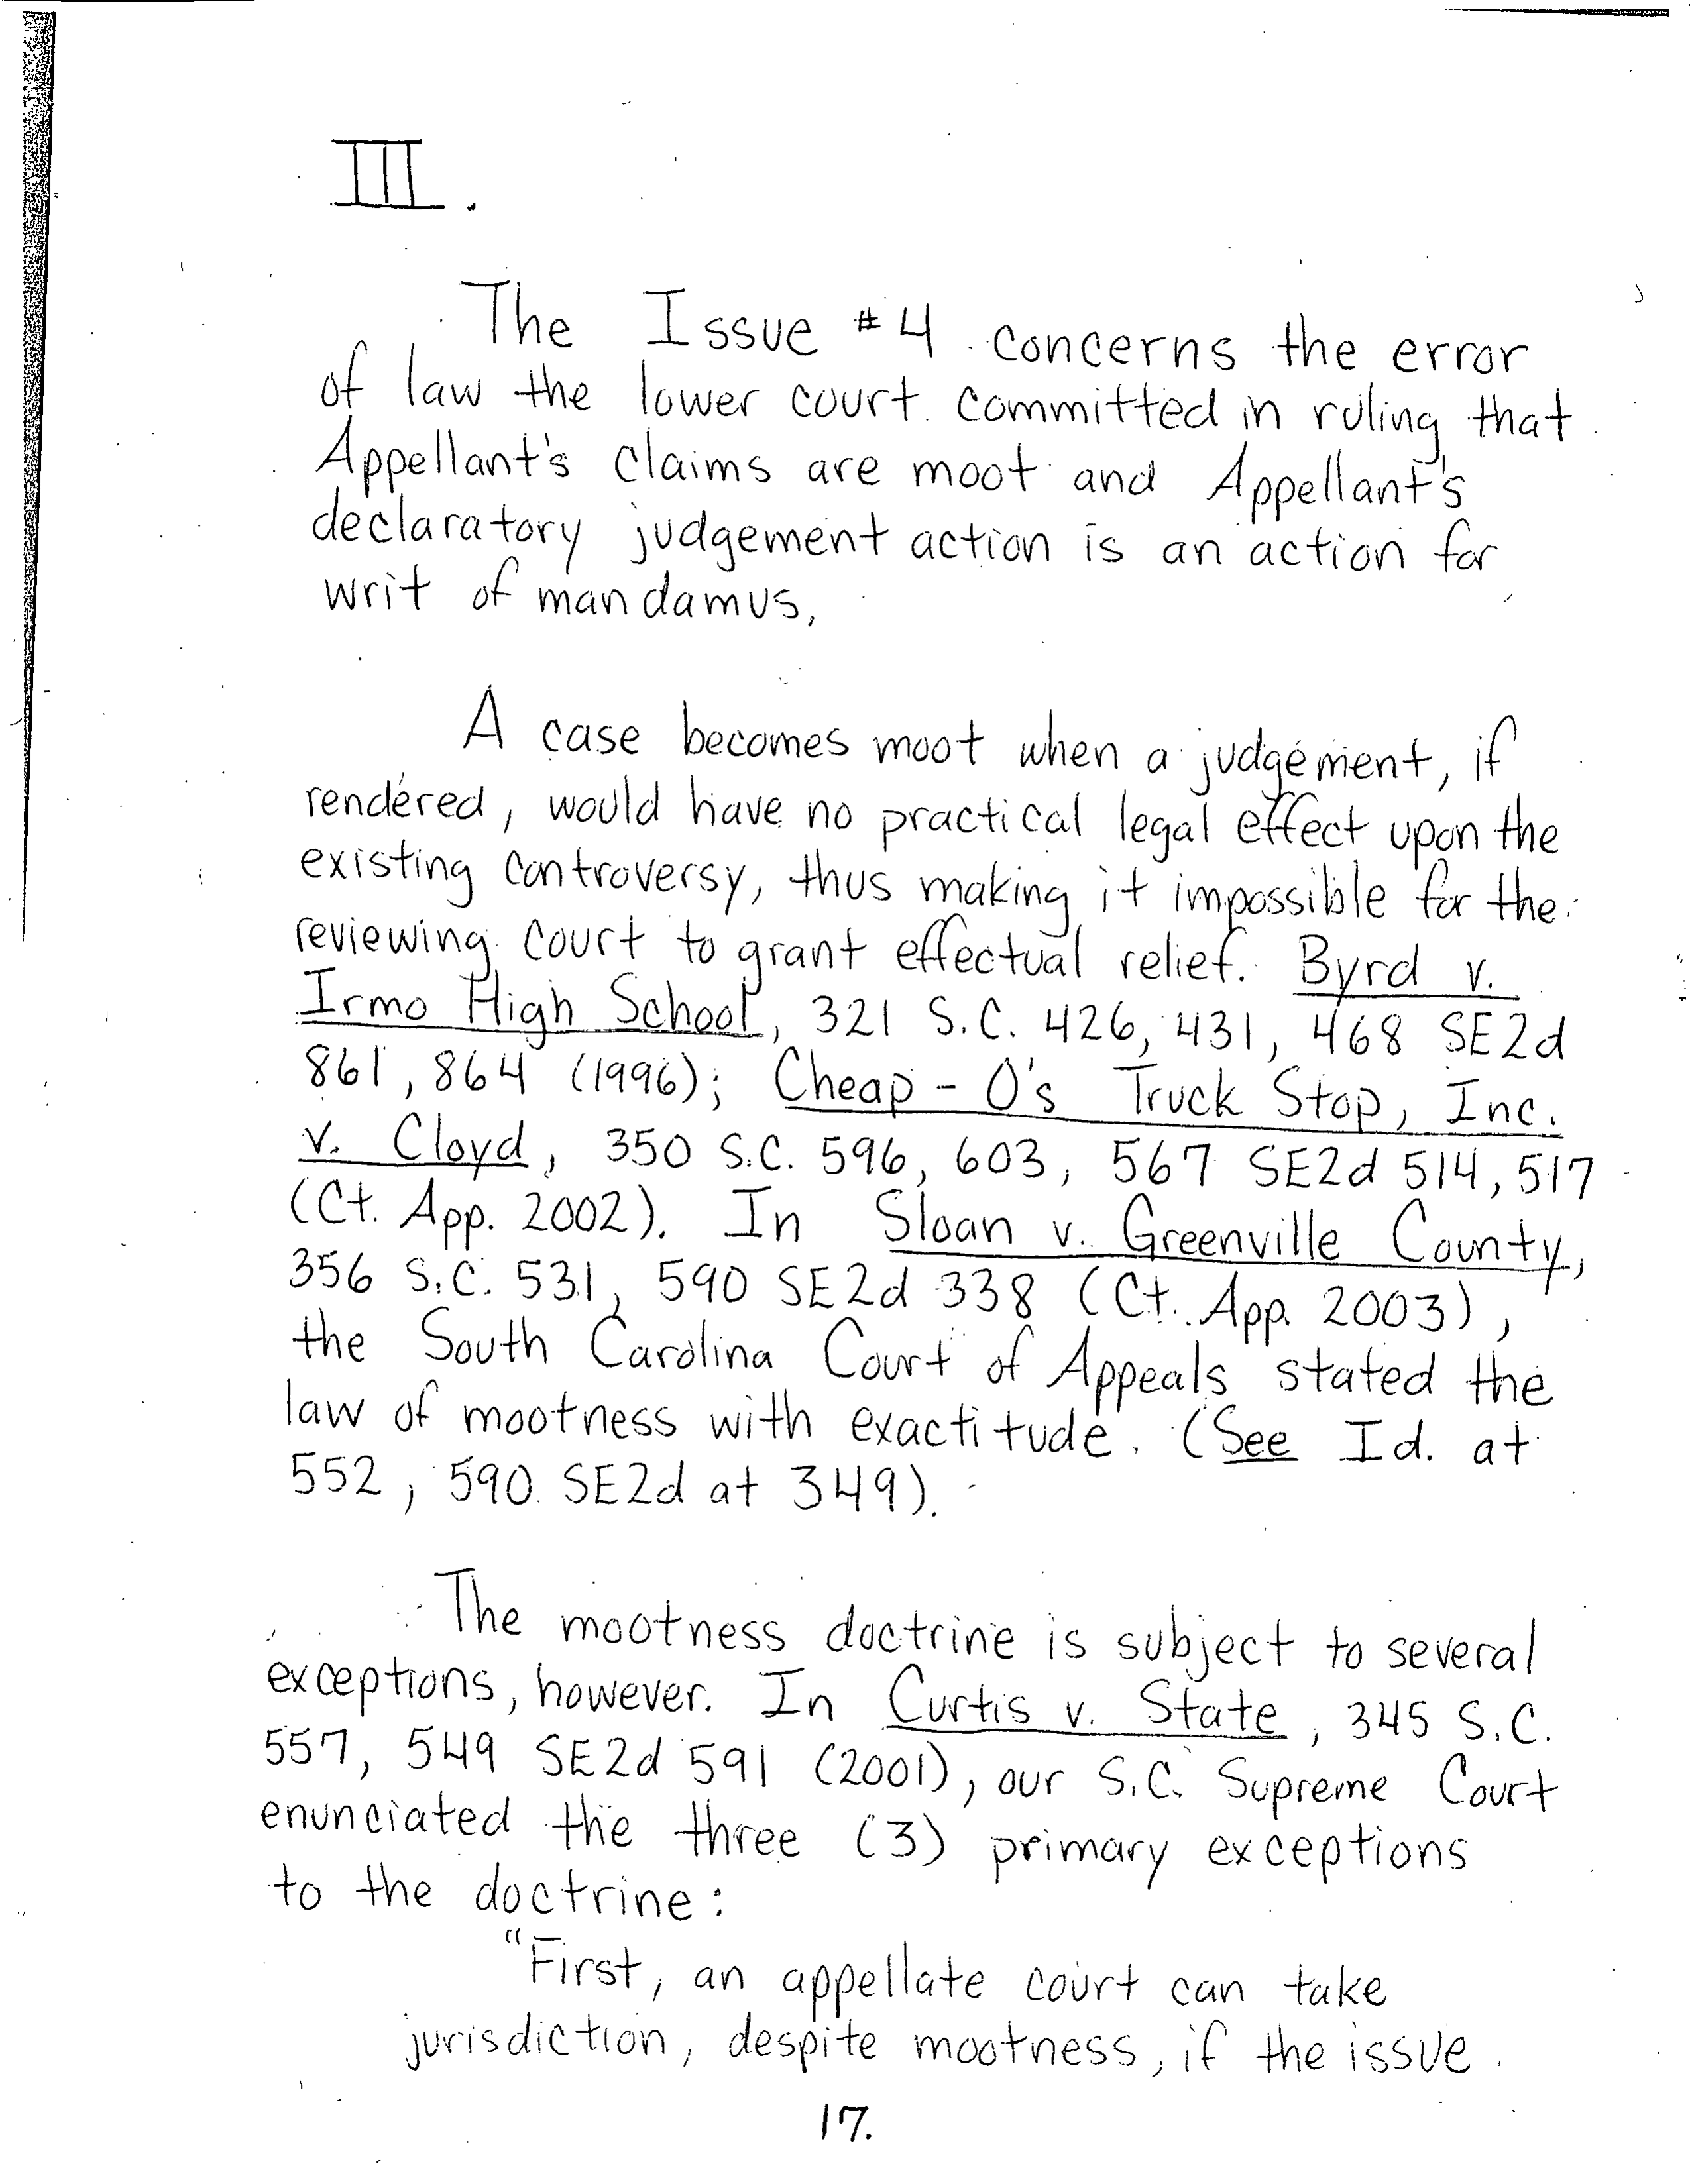 III.
The Issue #4 concerns the error
of law the lower court committed in ruling that
Appellant's claims are moot and Appellant's
declaratory judgement action is an action for
writ of mandamus,
A case becomes moot when a judgement, if
rendered, would have no practical legal effect upon the
existing controversy, thus making it impossible for the
reviewing court to grant effectual relief. Byrd v.
Irmo High School, 321 S.C. 426, 431, 468 SE2d
861, 864 (1996); Cheap-O's Truck Stop, Inc.
v. Cloyd, 350 S.C. 596, 603, 567 SE2d 514, 517
(Ct. App. 2002). In Sloan v. Greenville County,
356 S.C. 531, 590 SE2d 338 (Ct. App. 2003),
the South Carolina Court of Appeals stated the
law of mootness with exactitude. (See Id. at
552, 590 SE2d at 349).
The mootness doctrine is subject to several
exceptions, however. In Curtis v. State, 345 S.C.
557, 549 SE2d 591 (2001), our S.C. Supreme Court
enunciated the three (3) primary exceptions
to the doctrine:
"First, an appellate court can take
jurisdiction, despite mootness, if the issue
17.